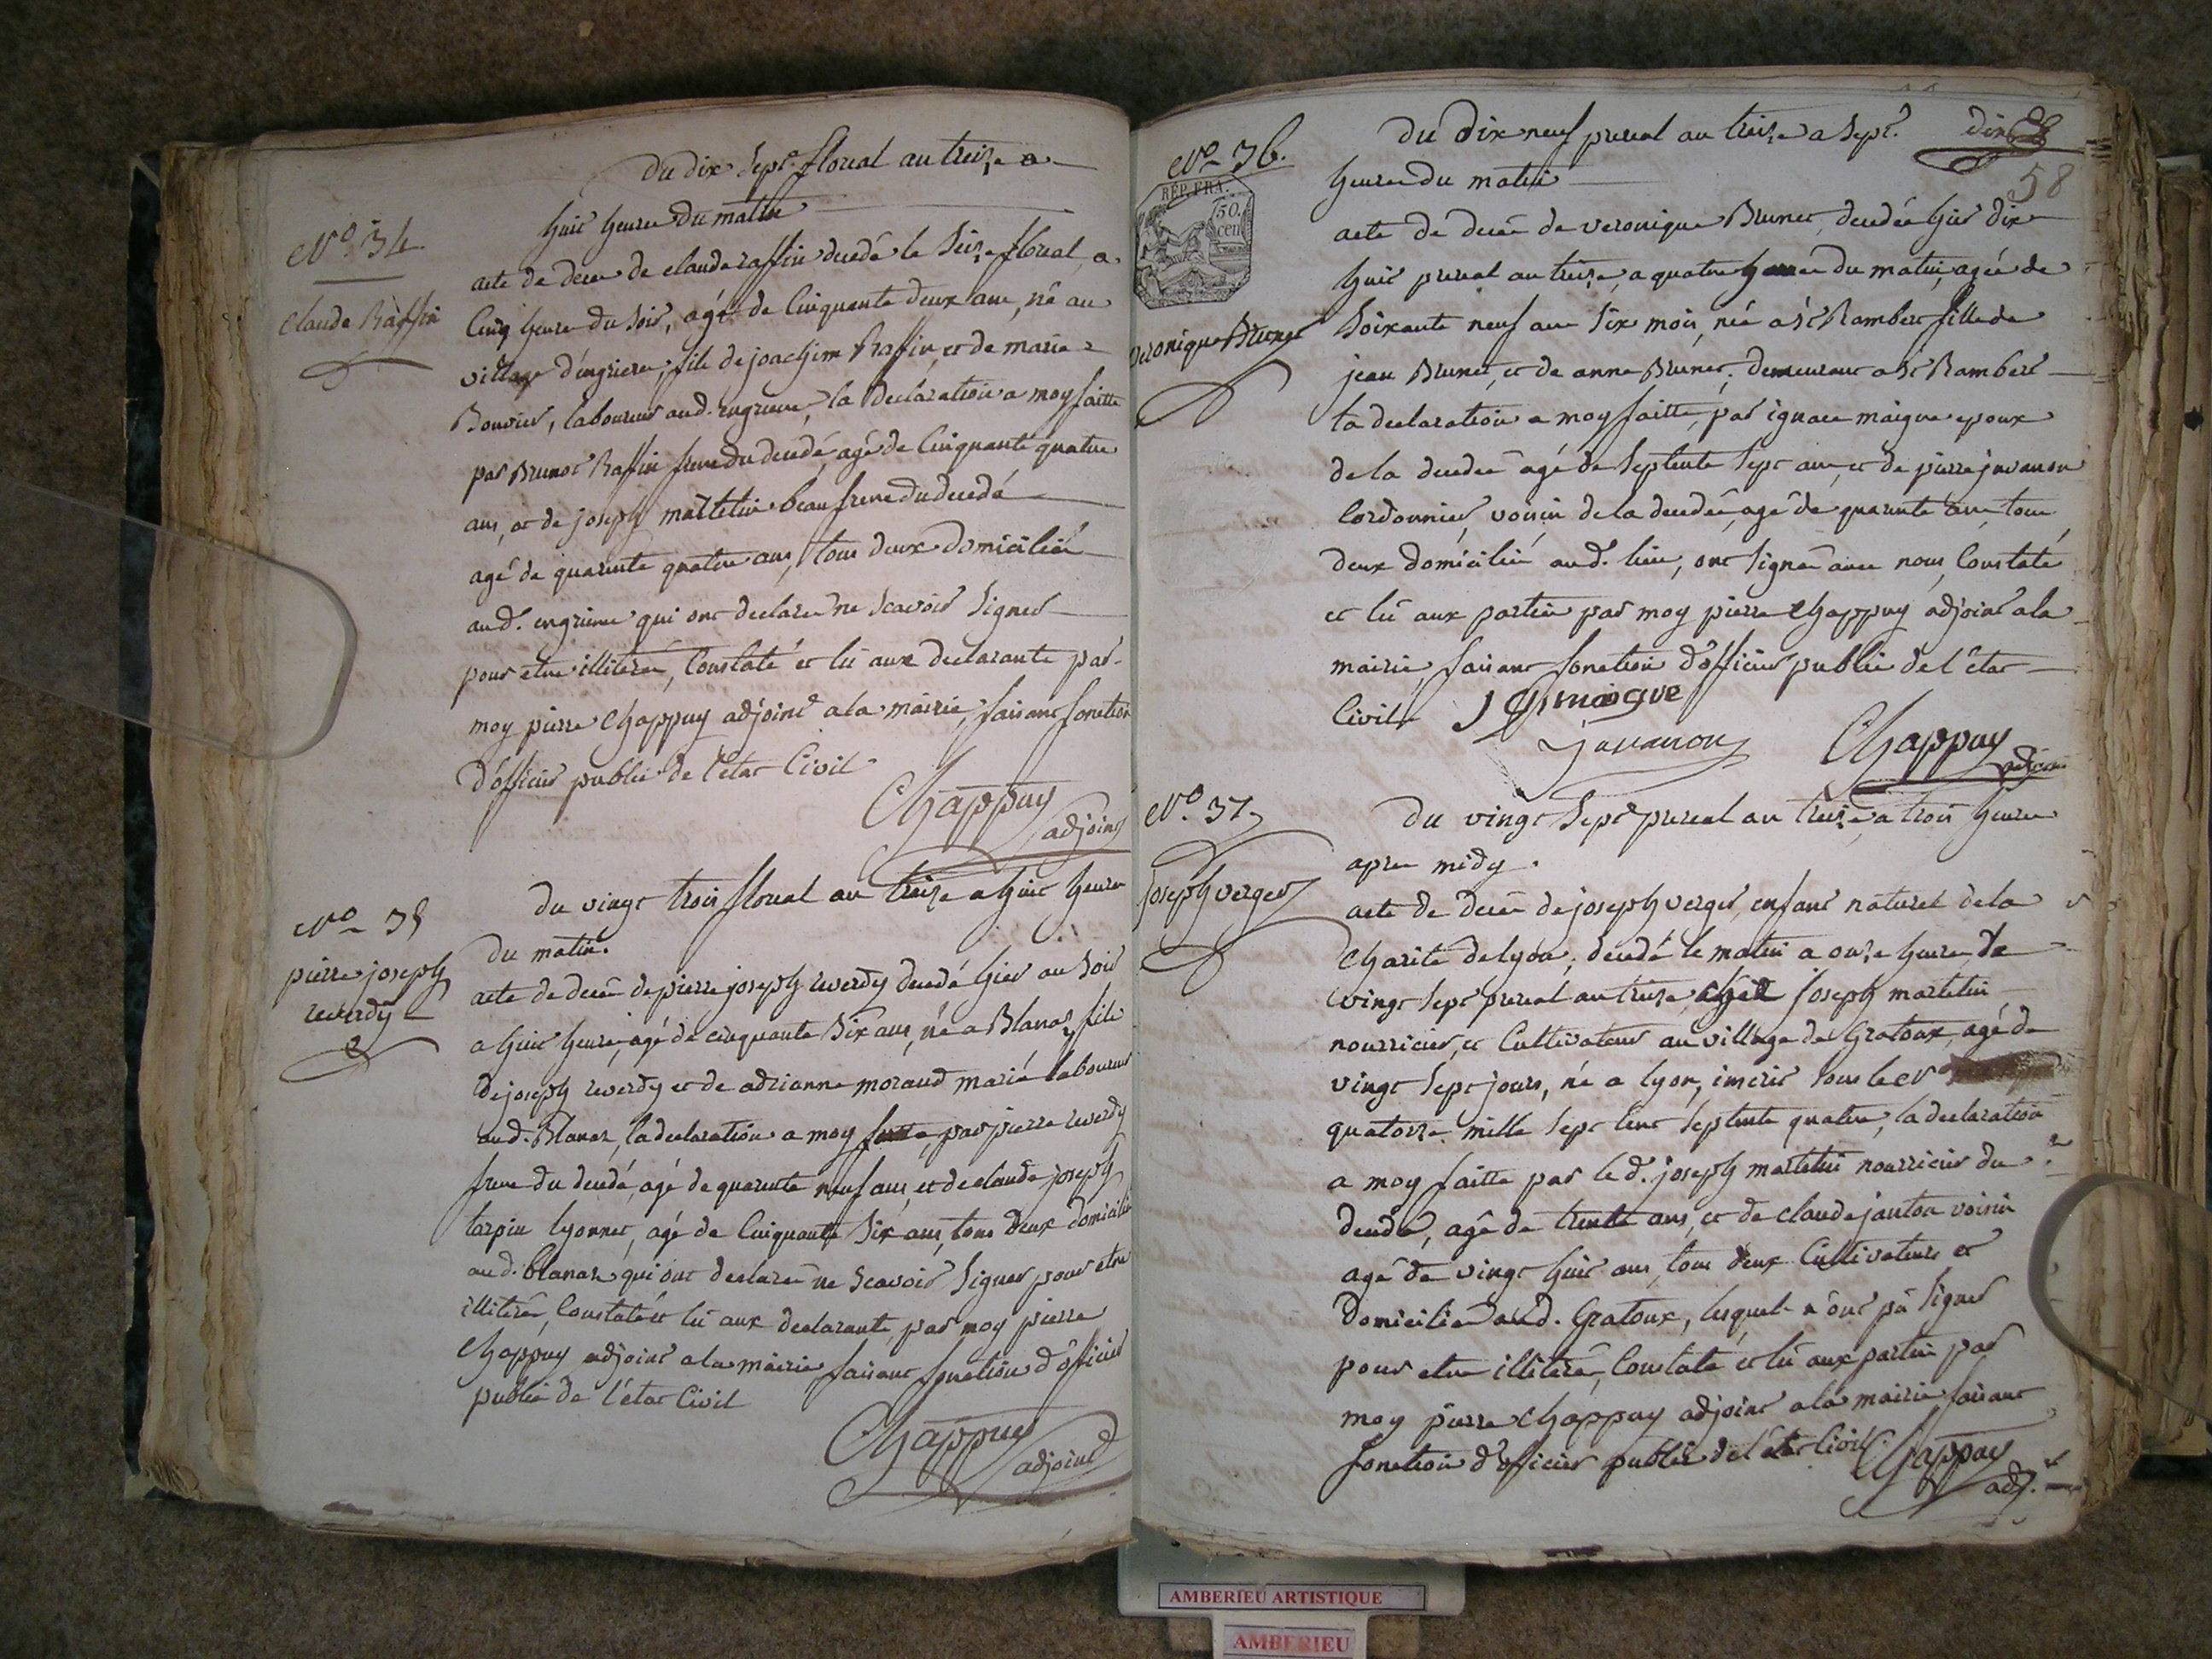 du dix sept floreal an treize a
huit heures du matin
N° 34
Claude Raffin
acte de deces de claude raffin decedé le seize floreal a
cinq heures du soir, agé de cinquante deux ans, né au
village d'engrieres, fils de joachim Raffin, et de marie
Bouvier, laboureur aud. engrieres, la declaration a moy faitte
par Brunot Raffin frere du decedé, agé de cinquante quatre
ans, et de joseph martelin beau frere du decedé
agé de quarente quatre ans, tous deux domiciliés
aud. engrieres qui ont declarés ne scavoir signer
pour etre illiterés, Constaté et lû aux declarants par
moy pierre Chappuy adjoint a la mairie, faisant fonction
d'officier public de l'etat Civil
Chappuy
adjoint
N° 35
pierre joseph
reverdy
du vingt trois floreal an treize a huit heures
du matin.
acte de decés de pierre joseph reverdy decedé hier au soir
a huit heures, agé de cinquante six ans, né a Blanas, fils
de joseph reverdy et de adrianne moraud marié laboureur
aud. Blanas, la declaration a moy faitte, par pierre reverdy
frere du decedé, agé de quarente neuf ans, et de claude joseph
tarpin lyonnet, agé de cinquante six ans, tous deux domiciliés
aud. blanas qui ont declarés ne scavoir signer pour etre
illiterés, Constaté et lû aux declarants, par moy pierre
Chappuy adjoint a la mairie faisant fonction d'officier
public de l'état Civil
Chappuy
adjoint
N° 36.
REP. FRA.
50.
cen
Veronique Brunet
du dix neuf prereal an treize a sept
58
heures du matin
acte de decés de veronique Brunet, decedée hier dix
huit prereal an treize, a quatre heures du matin, agée de
soixante neuf ans six mois, née a St Rambert fille de
jean Brunet, et de anne Brunet, demeurant a St Rambert
la declaration a moy faitte, par ignace maigne epoux
de la decedée agé de septente sept ans, et de pierre juvanon
Cordonnier, voisin de la decedée, agé de quarente ans, tous
deux domiciliés aud. lieu, ont signés avec nous, Constaté
et lû aux parties par moy pierre Chappuy adjoint a la
mairie, faisant fonction d'officier public de l'état
Civil
Chappuy
adjoint
N° 37.
joseph verger
du vingt sept prereal an treize, a trois heures
apres midy.
acte de decés de joseph verger, enfant naturel de la
Charité de lyon, decedé le matin a onze heures, de
vingt sept prereal an treize, chez joseph martelin
nourricier, et Cultivateur au village de Gratoux, agé de
vingt sept jours, né a lyon, inscrit sous le N°
quatorze mille sept cent septente quatre, la declaration
a moy faitte par le d. joseph martelin nourricier du
decedé, agé de trente ans, et de claude janton voisin
agé de vingt huit ans, tous deux Cultivateurs et
domiciliés aud. Gratoux, lesquels n'ont pû signer
pour etre illiterés, Constaté et lû aux parties par
moy pierre Chappuy adjoint a la mairie faisant
fonction d'officier public de l'état Civil
Chappuy
adj.
AMBERIEU ARTISTIQUE
AMBERIEU